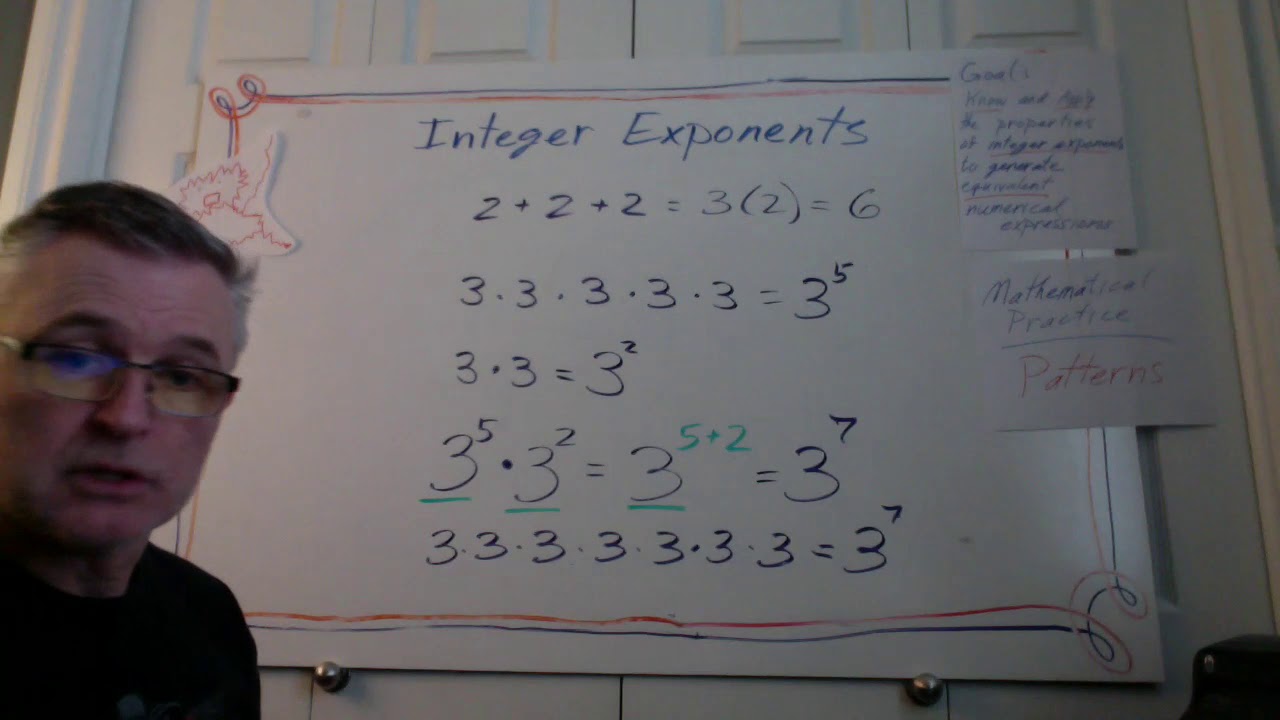 Integer Exponents
2 + 2 + 2 = 3(2) = 6
3 · 3 · 3 · 3 · 3 = 3⁵
3 · 3 = 3²
3⁵ · 3² = 3⁵⁺² = 3⁷
3 · 3 · 3 · 3 · 3 · 3 · 3 = 3⁷
Goal:
Know and Apply
the properties
of integer exponents
to generate
equivalent
numerical
expressions
Mathematical
Practice
Patterns